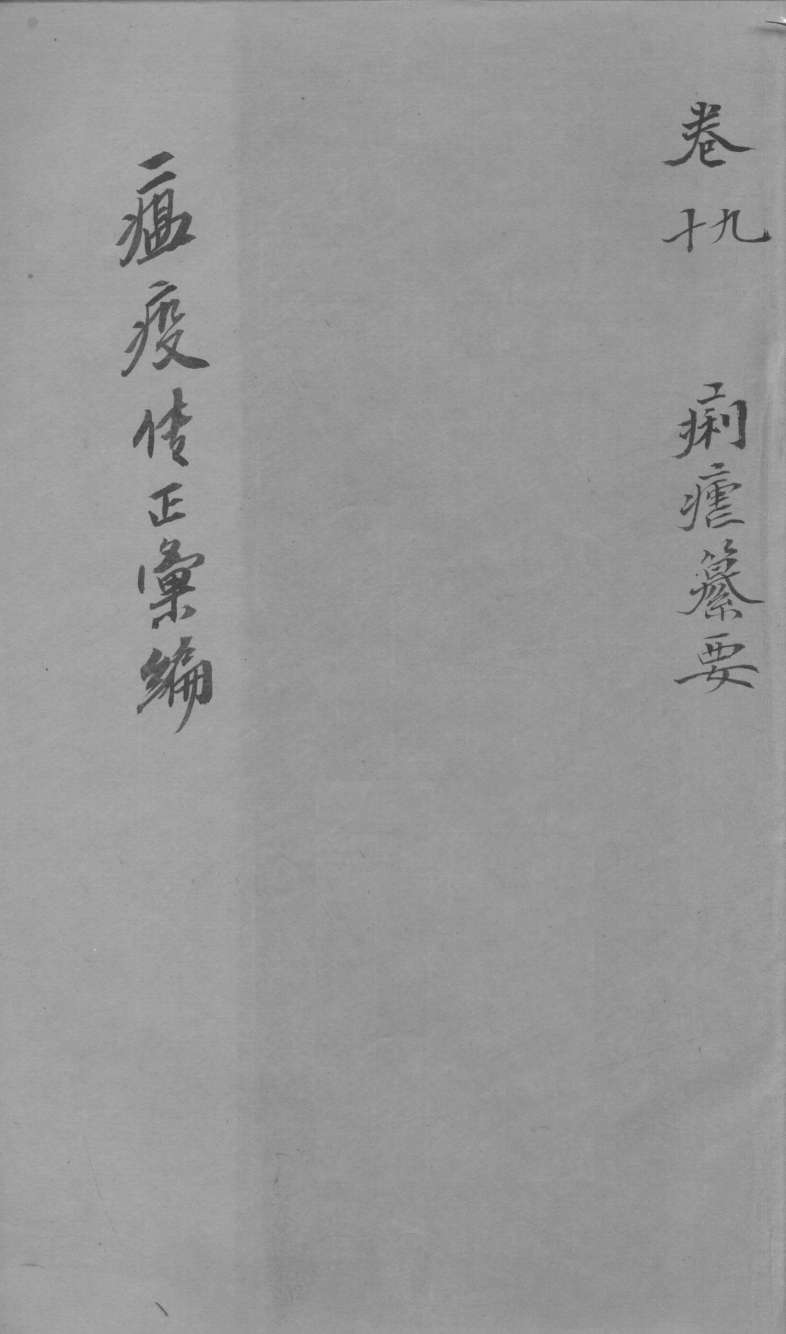 卷九十 痢瘧纂要
瘟疫传正彙編